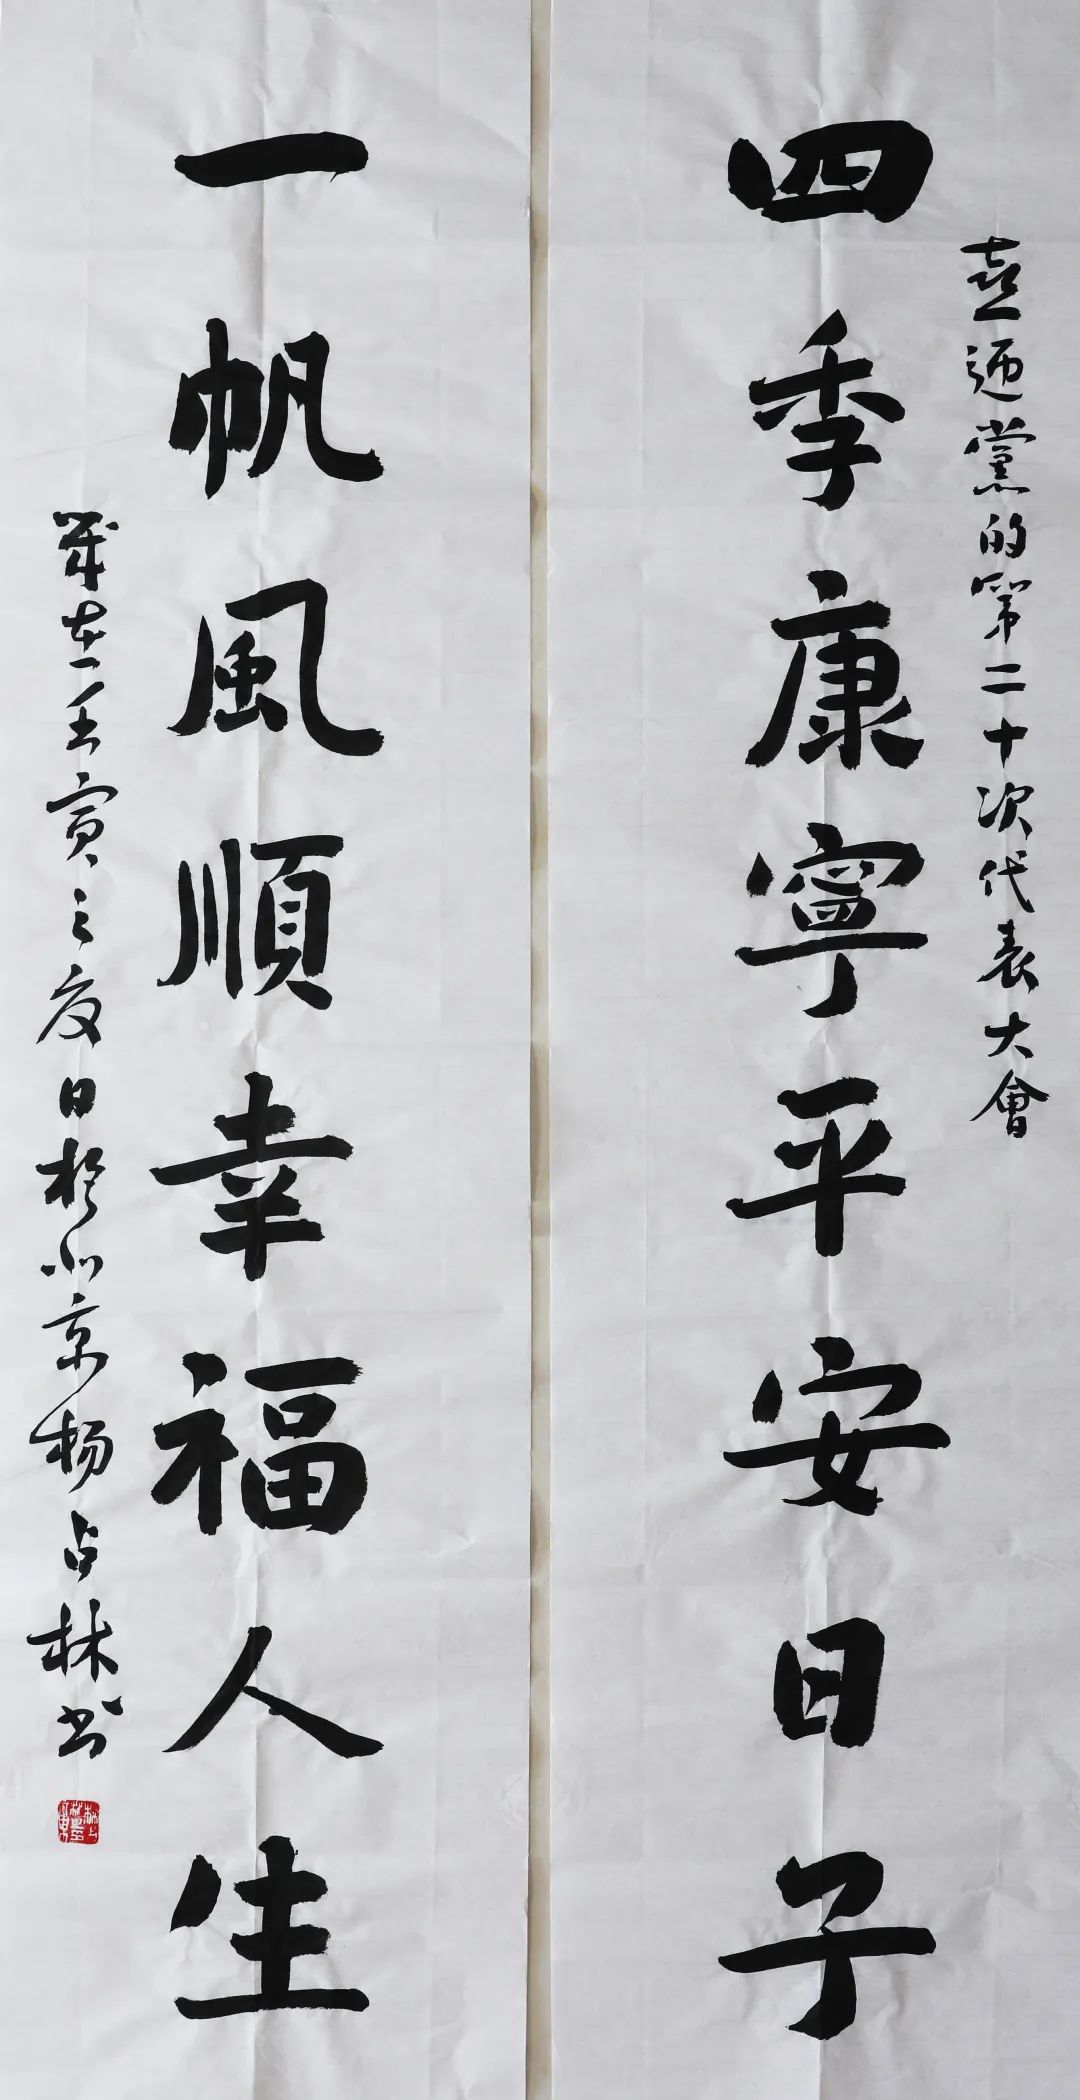 喜迎黨的第二十次代表大會
四季康寧平安日子
一帆風順幸福人生
歲在壬寅之夏日於北京杨占林书